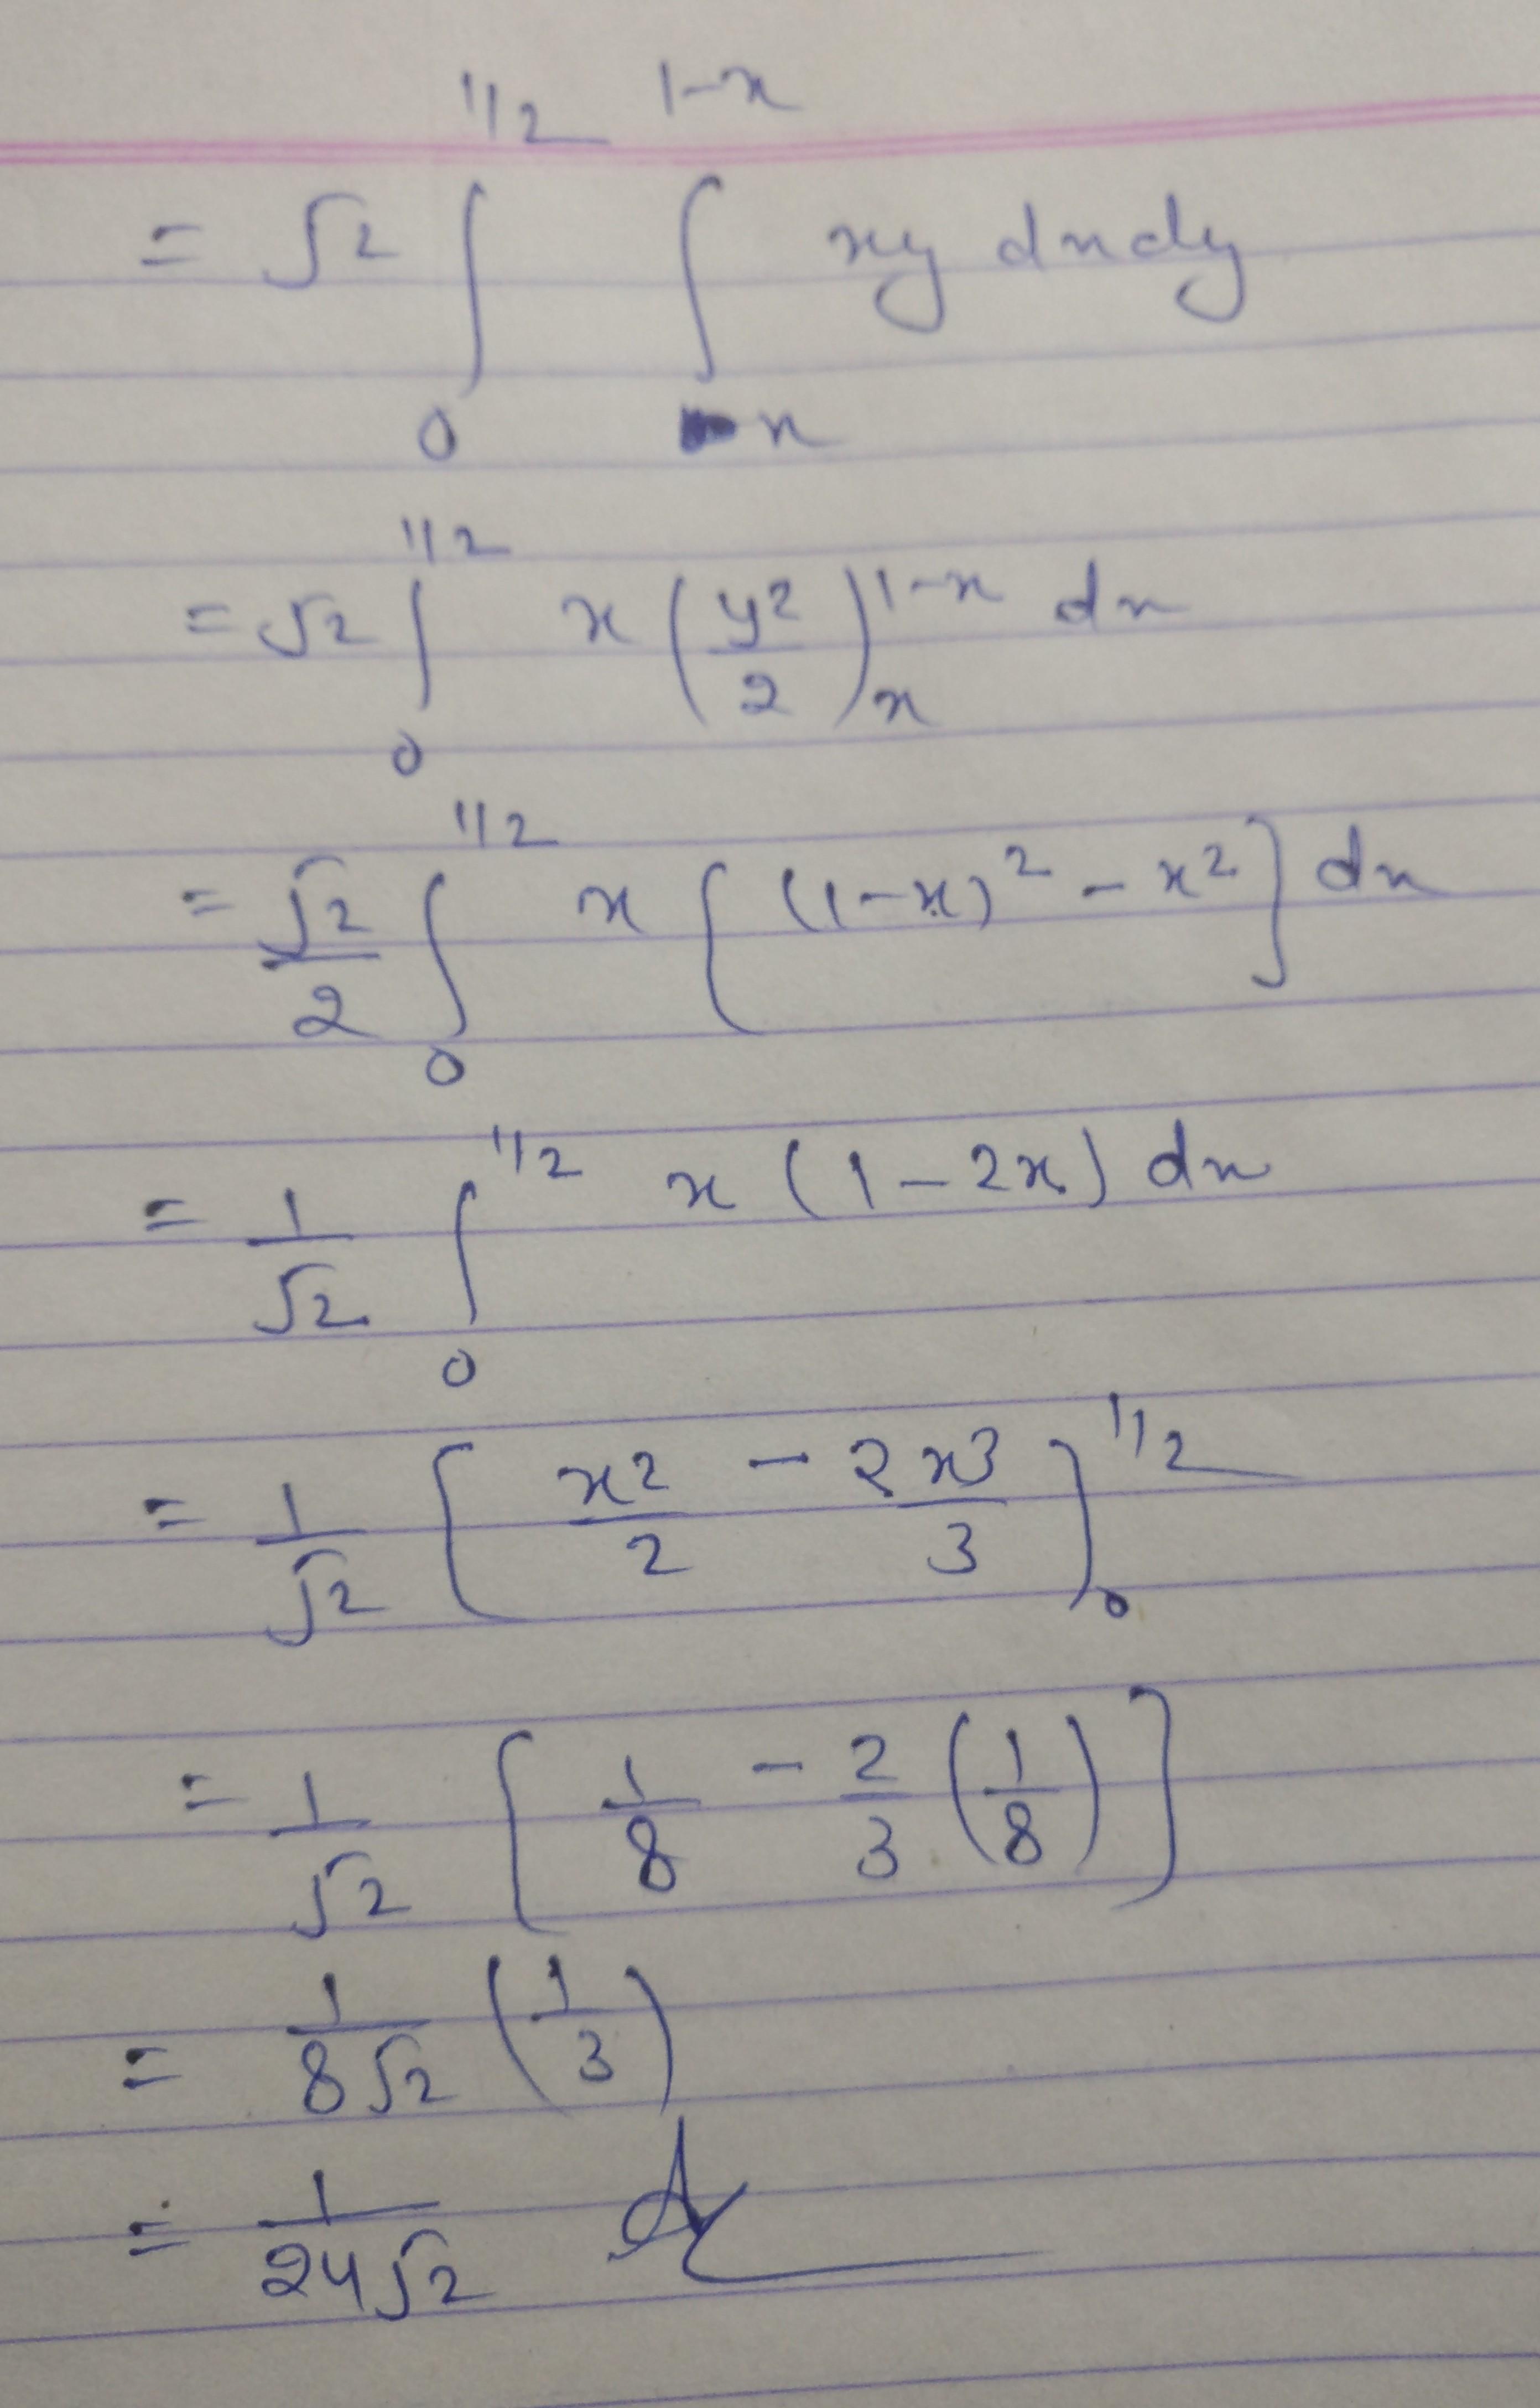 = √2 ∫₀^{1/2} ∫ₓ^{1-x} xy dxdy
= √2 ∫₀^{1/2} x (y²/2)ₓ^{1-x} dx
= √2/2 ∫₀^{1/2} x [(1-x)² - x²] dx
= 1/√2 ∫₀^{1/2} x (1-2x) dx
= 1/√2 [x²/2 - 2x³/3]₀^{1/2}
= 1/√2 [1/8 - 2/3 (1/8)]
= 1/8√2 (1/3)
= 1/24√2